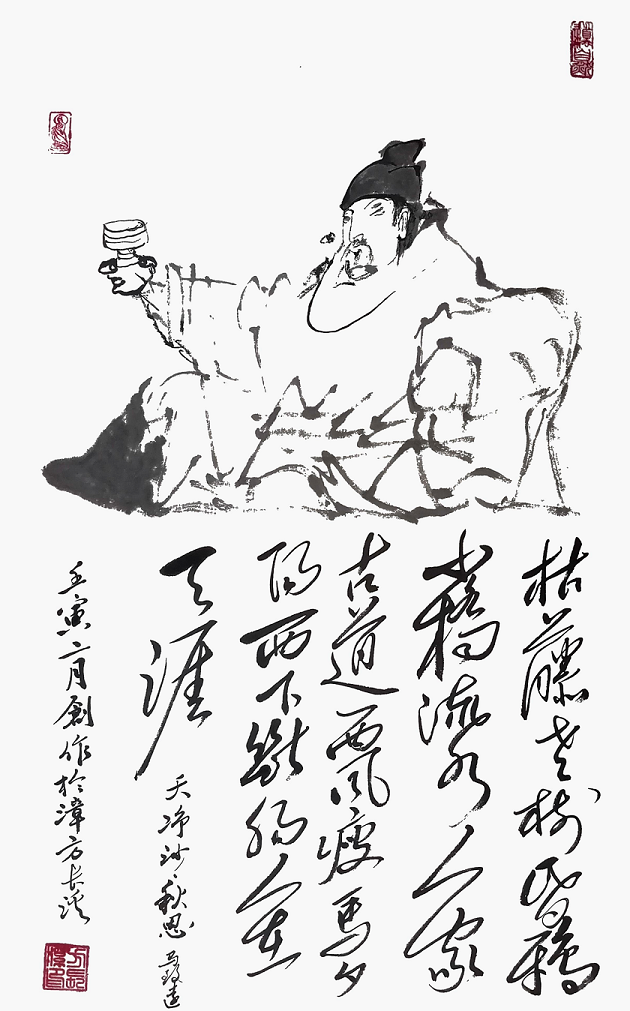 枯藤老树昏鸦
小橋流水人家
古道西风瘦马夕
阳西下斷肠人在
天涯
天净沙 秋思 马致远
壬寅二月創作於漳 方长溪